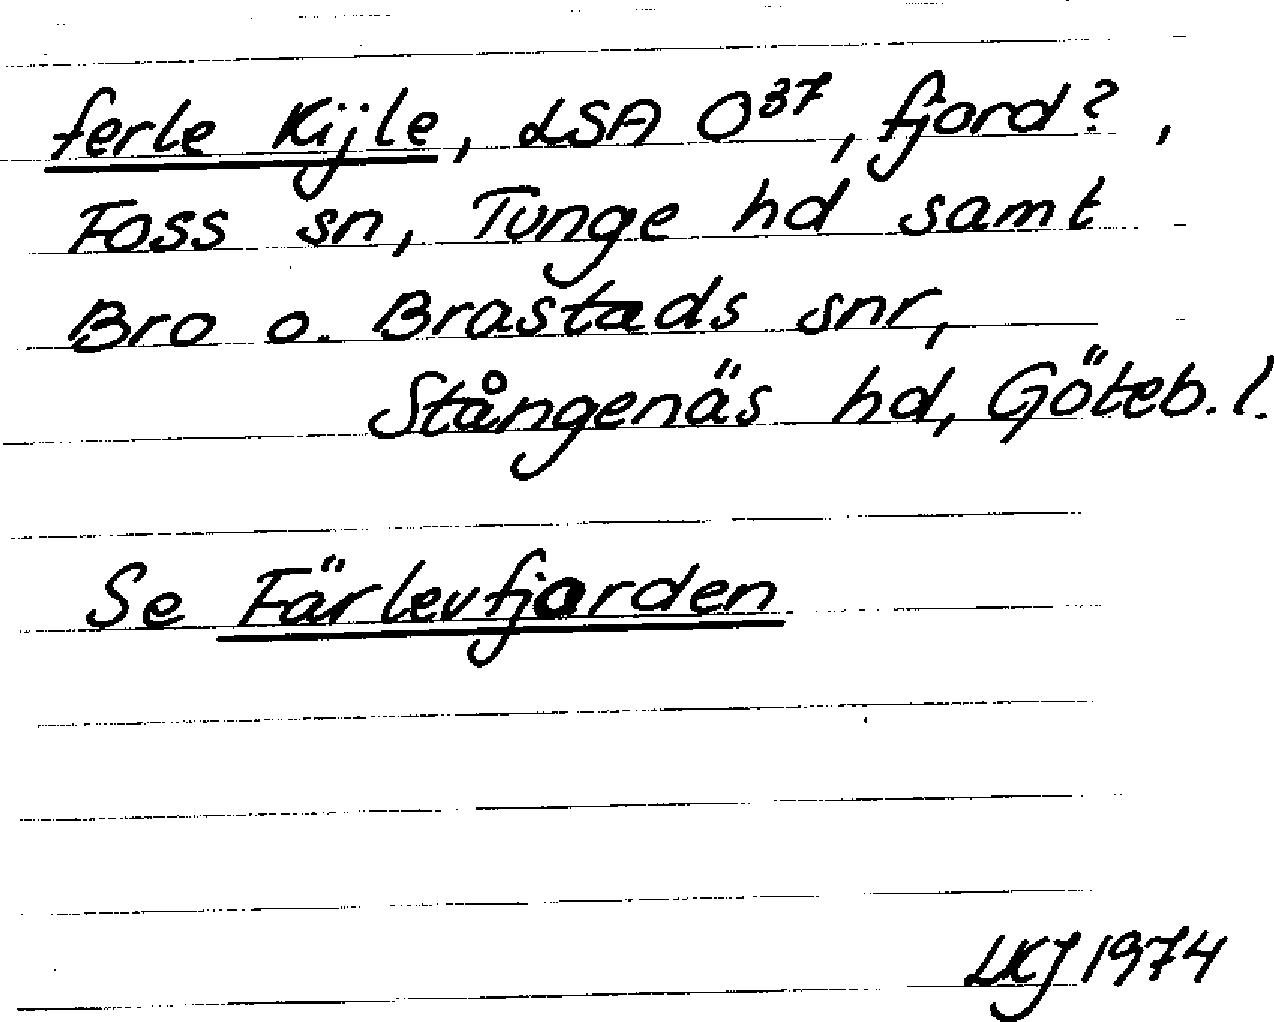 ferle Kijle, LSA O³⁷, fjord?,
Foss sn, Tunge hd samt
Bro o. Brastads snr,
Stångenäs hd, Göteb. l.
Se Färlevfjorden
LKJ 1974